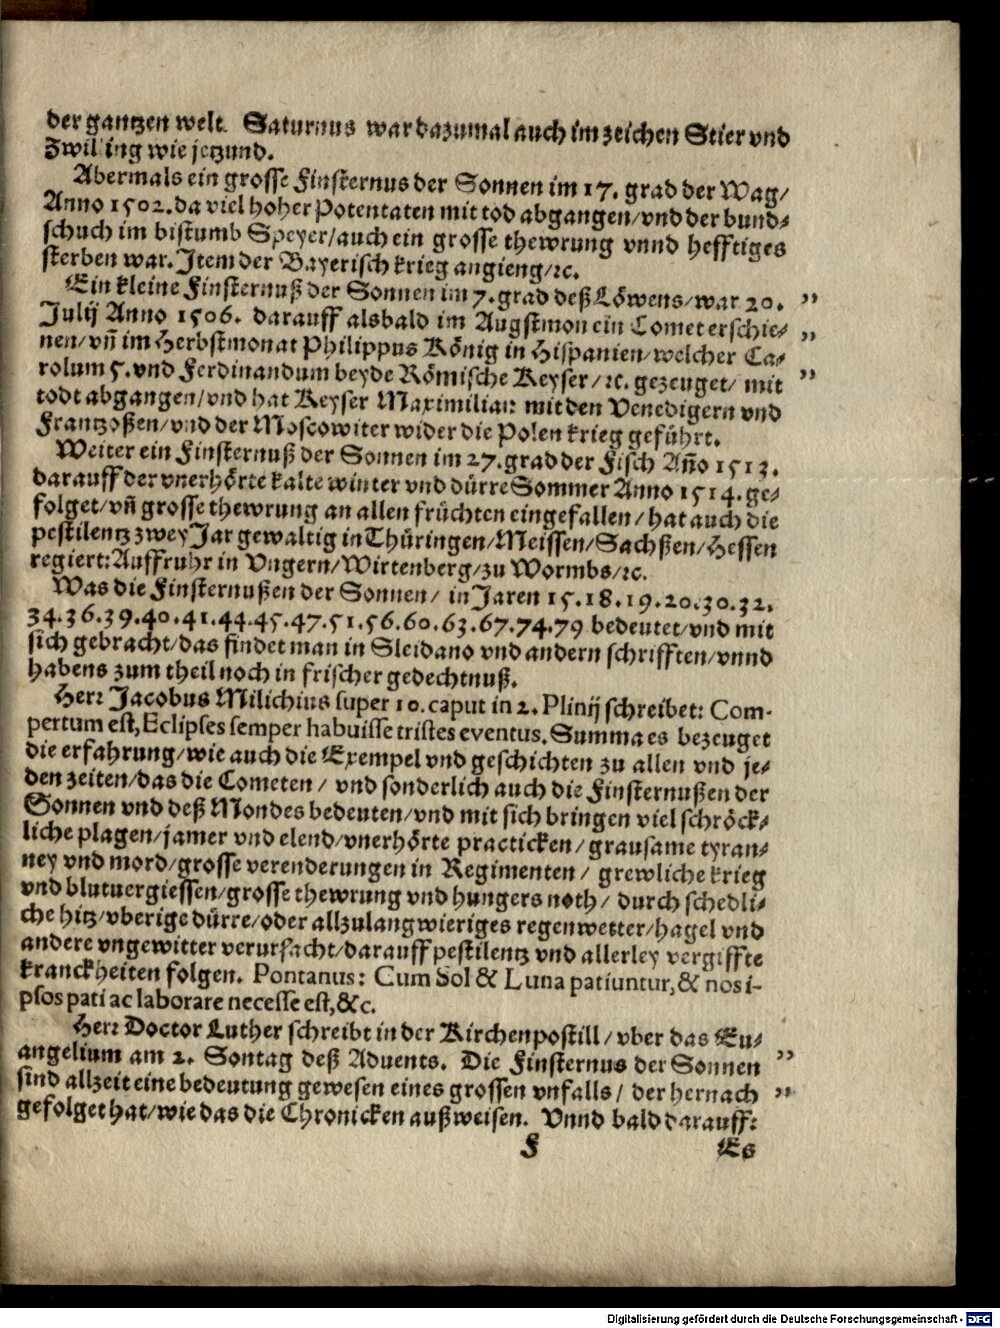 der gantzen welt. Saturnus war dazumal auch im zeichen Stier vnd
Zwilling wie jetzund.
Abermals ein grosse Finsternus der Sonnen im 17. grad der Wag/
Anno 1502. da viel hoher Potentaten mit tod abgangen/vnd der bund⸗
schuch im bistumb Speyer/auch ein grosse thewrung vnnd hefftiges
sterben war. Item der Bayerisch krieg angieng/ꝛc.
Ein kleine Finsternuß der Sonnen im 7. grad deß Löwens/war 20. ”
Julij Anno 1506. darauff alsbald im Augstmon ein Comet erschie⸗ ”
nen/vñ im Herbstmonat Philippus König in Hispanien/welcher Ca⸗
rolum 5. vnd Ferdinandum beyde Römische Keyser/ꝛc. gezeuget/ mit ”
todt abgangen/vnd hat Keyser Maximilian mit den Venedigern vnd
Frantzoßen/vnd der Moscowiter wider die Polen krieg geführt.
Weiter ein Finsternuß der Sonnen im 27. grad der Fisch Año 1513.
darauff der vnerhörte kalte winter vnd dürre Sommer Anno 1514. ge⸗
folget/vñ grosse thewrung an allen früchten eingefallen/ hat auch die
pestilentz zwey Jar gewaltig in Thüringen/Meissen/Sachßen/Hessen
regiert: Auffruhr in Vngern/Wirtenberg/zu Wormbs/ꝛc.
Was die Finsternußen der Sonnen/ in Jaren 15. 18. 19. 20. 30. 32.
34. 36. 39. 40. 41. 44. 45. 47. 51. 56. 60. 63. 67. 74. 79 bedeutet/vnd mit
sich gebracht/das findet man in Sleidano vnd andern schrifften/vnnd
habens zum theil noch in frischer gedechtnuß.
Herr Jacobus Milichius super 10. caput in 2. Plinij schreibet: Com-
pertum est, Eclipses semper habuisse tristes eventus. Summa es bezeuget
die erfahrung/wie auch die Exempel vnd geschichten zu allen vnd je⸗
den zeiten/das die Cometen/ vnd sonderlich auch die Finsternußen der
Sonnen vnd deß Mondes bedeuten/vnd mit sich bringen viel schröck⸗
liche plagen/jamer vnd elend/vnerhörte practicken/ grausame tyran⸗
ney vnd mord/grosse verenderungen in Regimenten/ grewliche krieg
vnd blutuergiessen/grosse thewrung vnd hungers noth/ durch schedli⸗
che hitz/vberige dürre/oder allzulangwieriges regenwetter/hagel vnd
andere vngewitter verursacht/darauff pestilentz vnd allerley vergiffte
kranckheiten folgen. Pontanus: Cum Sol & Luna patiuntur, & nos i-
psos pati ac laborare necesse est, &c.
Herr Doctor Luther schreibt in der Kirchenpostill/ vber das Eu⸗
angelium am 2. Sontag deß Aduents. Die Finsternus der Sonnen ”
sind allzeit eine bedeutung gewesen eines grossen vnfalls/ der hernach ”
gefolget hat/wie das die Chronicken außweisen. Vnnd bald darauff:
F Es
Digitalisierung gefördert durch die Deutsche Forschungsgemeinschaft - DFG